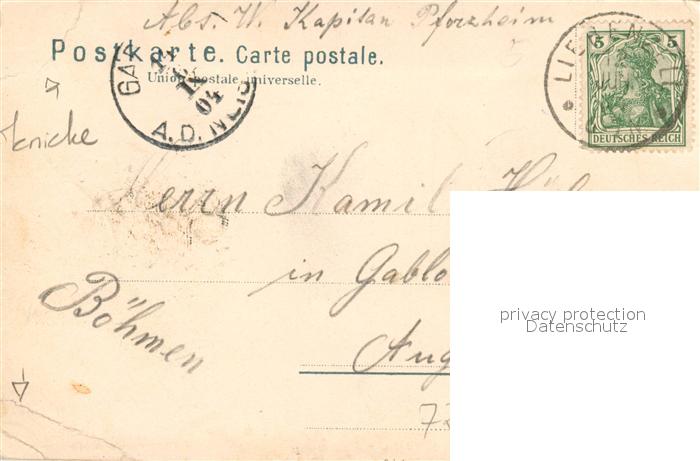 Abs. W. Kapitan Pforzheim
Postkarte. Carte postale.
Union postale universelle.
GA
IX
04
A.D. NEIS
LIE EN
5 5
DEUTSCHES REICH
knicke
Herrn Kamil
in Gablo
Böhmen
Aug
72
privacy protection
Datenschutz